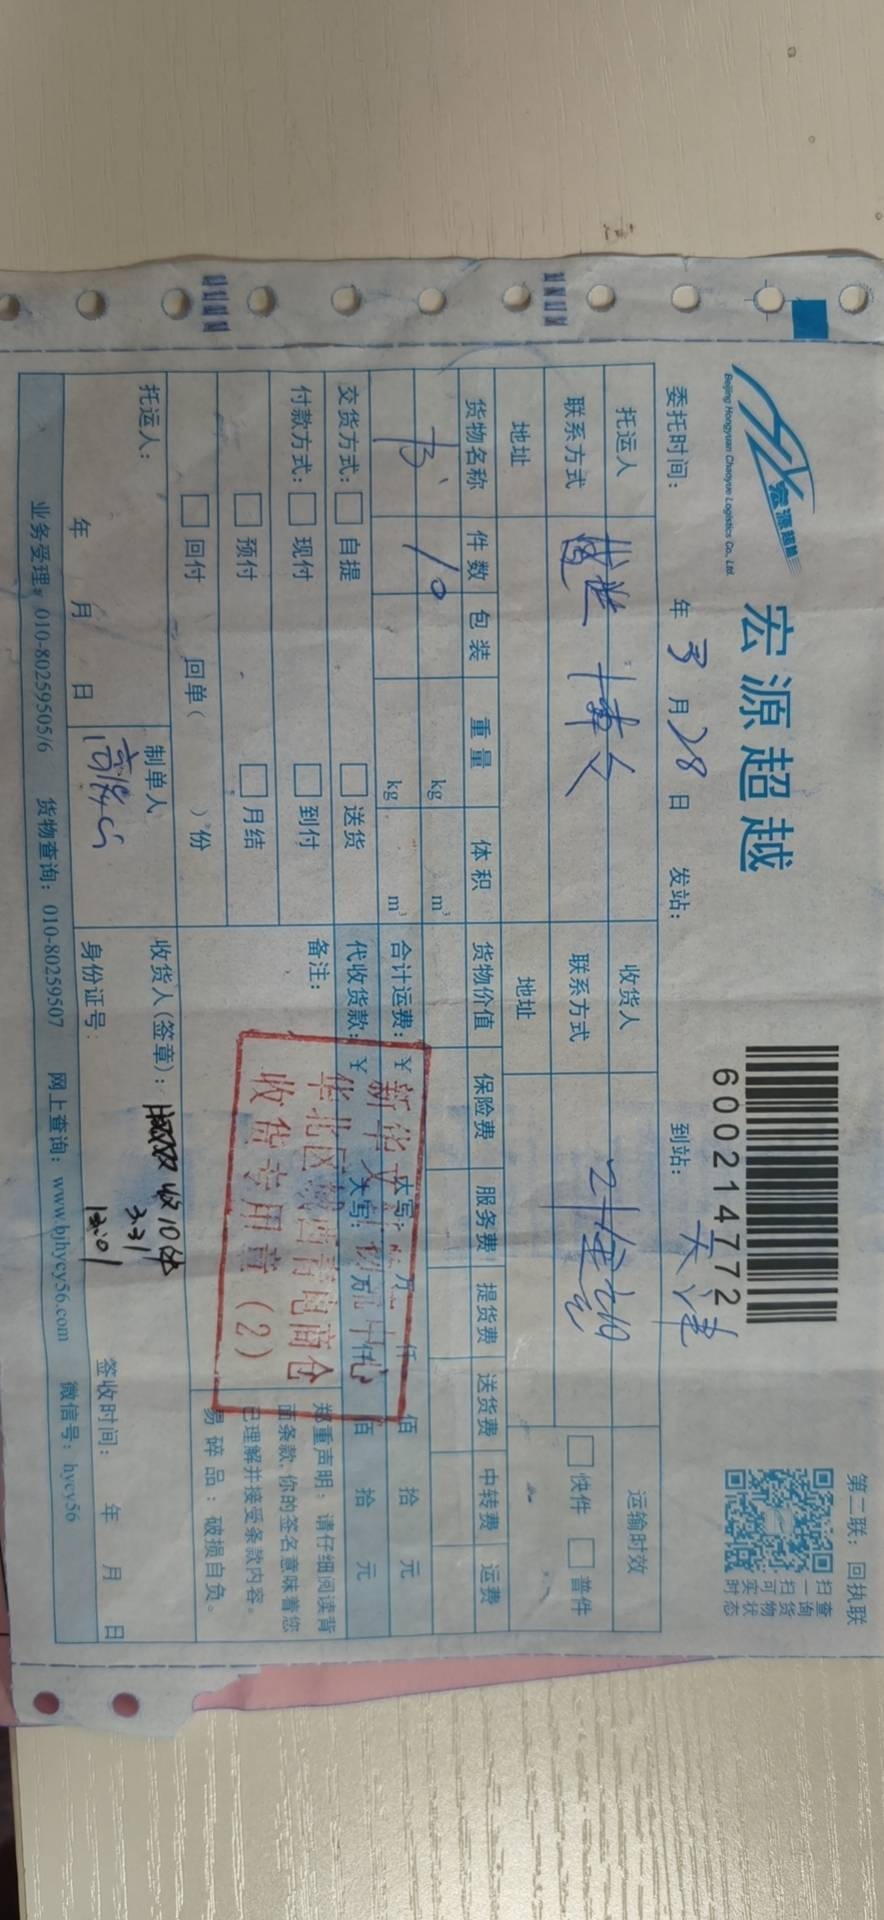 第二联：回执联
宏源超越
Beijing Hongyuan Chaoyue Logistics Co., Ltd.
宏源超越
600214772
扫一扫可实时
查询货物状态
委托时间： 年 3 月 28 日 发站： 到站：天津
托运人 收货人 运输时效
联系方式 博文 联系方式 快件 普件
地址 地址
货物名称 件数 包装 重量 体积 货物价值 保险费 服务费 提货费 送货费 中转费 运费
书 10 kg m³
kg m³ 合计运费：￥ 大写： 万 仟 佰 拾 元
交货方式： 自提 送货 代收货款：￥ 大写： 万 仟 佰 拾 元
付款方式： 现付 到付 备注：
预付 月结
回付 回单（ ）份
郑重声明：请仔细阅读背
面条款，你的签名意味着您
已理解并接受条款内容。
易碎品：破损自负。
新华文 中心
华北区 西青电商仓
收货专用章（2）
托运人： 制单人 收货人（签章）： 收10件
3.31
13:01
年 月 日 身份证号： 签收时间： 年 月 日
业务受理：010-80259505/6 货物查询：010-80259507 网上查询：www.bjhycy56.com 微信号：hycy56